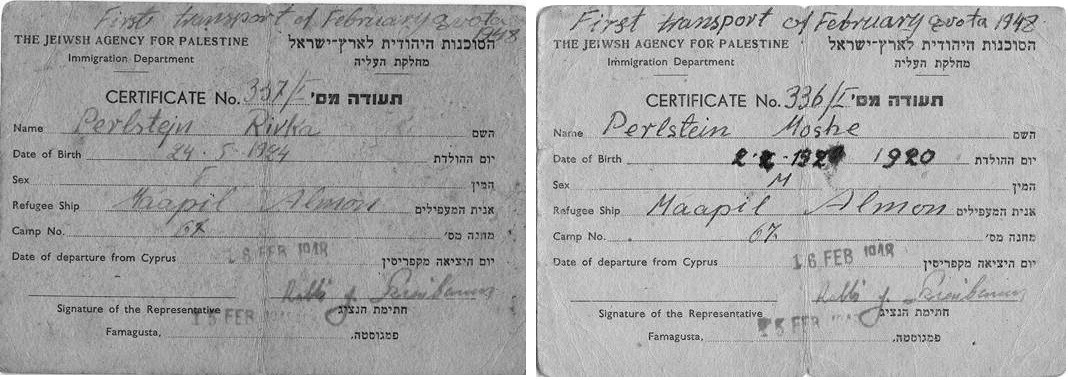 First transport of February quota 1948
THE JEIWSH AGENCY FOR PALESTINE הסוכנות היהודית לארץ-ישראל
Immigration Department מחלקת העליה
CERTIFICATE No. 337/I תעודה מס'
Name Perlstejn Rivka השם
Date of Birth 24·5·1924 יום ההולדת
Sex F המין
Refugee Ship Maapil Almoni אנית המעפילים
Camp No. 67 מחנה מס'
Date of departure from Cyprus 16 FEB 1948 יום היציאה מקפריסין
Rabbi J.
Signature of the Representative חתימת הנציג
15 FEB
Famagusta, פמגוסטה,
First transport of February quota 1948
THE JEIWSH AGENCY FOR PALESTINE הסוכנות היהודית לארץ-ישראל
Immigration Department מחלקת העליה
CERTIFICATE No. 336/I תעודה מס'
Name Perlstein Moshe השם
Date of Birth 1920 יום ההולדת
Sex M המין
Refugee Ship Maapil Almoni אנית המעפילים
Camp No. 67 מחנה מס'
Date of departure from Cyprus 16 FEB 1948 יום היציאה מקפריסין
Rabbi J.
Signature of the Representative חתימת הנציג
15 FEB
Famagusta, פמגוסטה,